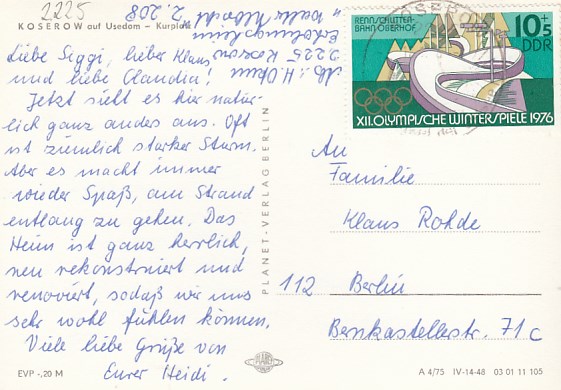 2225
KOSEROW auf Usedom – Kurplatz
Abs.: H. Ohm
2225 Koserow
Erholungsheim
"Walter Albrecht" Z. 208
Liebe Siggi, lieber Klaus
und liebe Claudia!
Jetzt sieht es hier natür-
lich ganz anders aus. Oft
ist ziemlich starker Sturm.
Aber es macht immer
wieder Spaß, am Strand
entlang zu gehen. Das
Heim ist ganz herrlich,
neu rekonstruiert und
renoviert, sodaß wir uns
sehr wohl fühlen können.
Viele liebe Grüße von
Eurer Heidi.
EVP -,20 M
PLANET-VERLAG BERLIN
PLANET
RENNSCHLITTEN-
BAHN OBERHOF
10+5
DDR
XII. OLYMPISCHE WINTERSPIELE 1976
An
Familie
Klaus Rohde
112 Berlin
Bernkastellerstr. 71c
A 4/75 IV-14-48 03 01 11 105